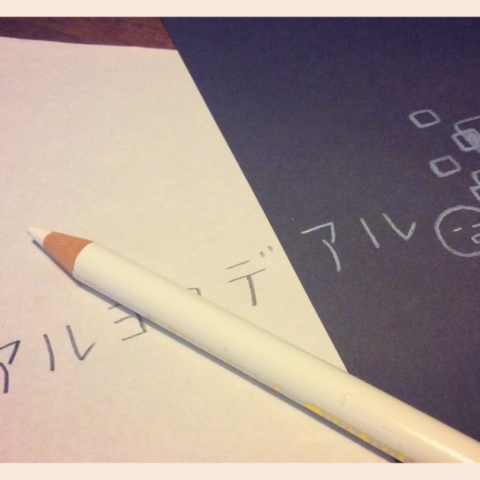 アルヨ デアル